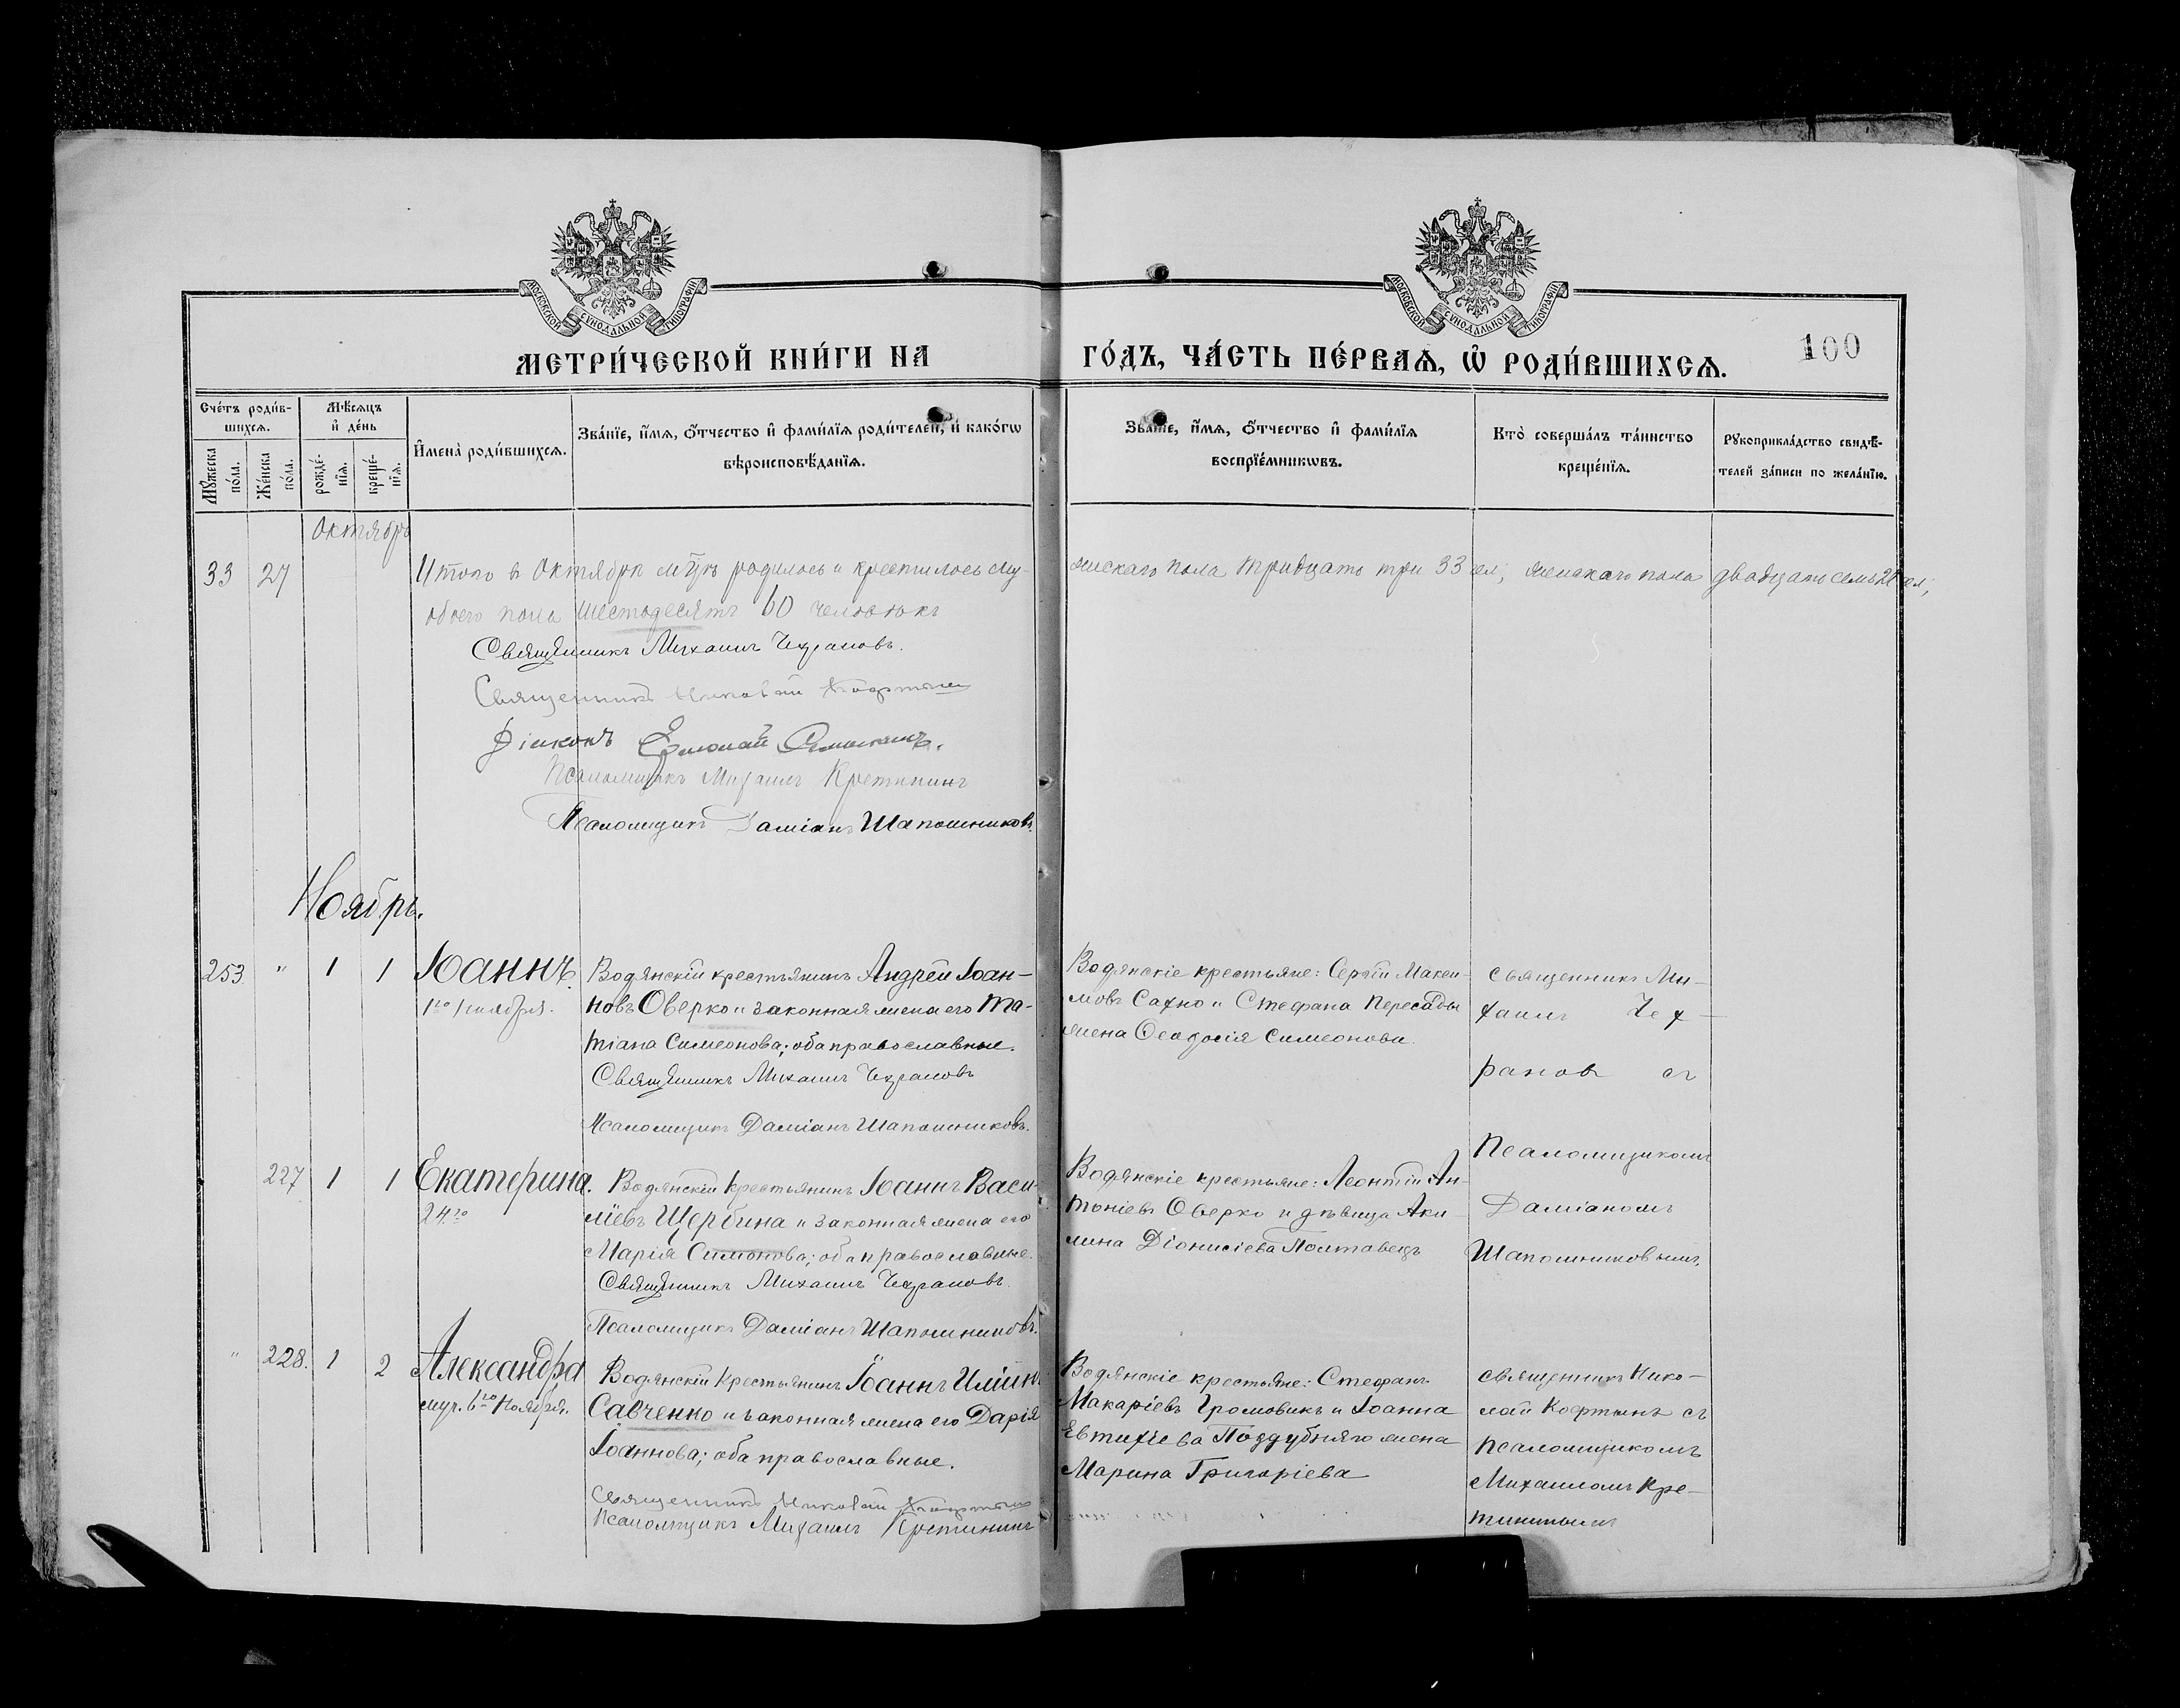 МОСКОВСКОЙ СѴНОДАЛЬНОЙ ТИПОГРАФІИ
МОСКОВСКОЙ СѴНОДАЛЬНОЙ ТИПОГРАФІИ
МЕТРИ́ЧЕСКОЙ КНИ́ГИ НА ГО́ДЪ, ЧА́СТЬ ПЕ́РВАЯ, Ѡ РОДИ́ВШИХСЯ.
100
Сче́тъ роди́в-
шихся.
Мꙋ́жеска
по́ла.
Же́нска
по́ла.
Мѣ́сяцъ
и҆ де́нь
рожде́-
нїя.
креще́-
нїя.
И҆мена̀ роди́вшихся.
Зва́нїе, и҆́мя, ѻ҆́тчество и҆ фами́лїя роди́телей, и҆ како́гѡ
вѣроисповѣ́данїя.
Зва́нїе, и҆́мя, ѻ҆́тчество и҆ фами́лїя
воспрїе́мникѡвъ.
Кто̀ соверша́лъ та́инство
креще́нїя.
Рꙋкоприкла́дство свидѣ́-
телей за́писи по жела́нїю.
Октябрь
33 27 Итого в Октябрѣ м-цѣ родилось и крестилось му-
жескаго пола тридцать три 33 чел; женскаго пола двадцать семь 27 чел;
обоего пола шестьдесятъ 60 человѣкъ
Священникъ Михаилъ Чехрановъ.
Священникъ Николай Кофтынъ
Діаконъ
Псаломщикъ Михаилъ Кретининъ
Псаломщикъ Даміанъ Шапошниковъ.
Ноябрь.
253 " 1 1 Іоаннъ.
1го ноября.
Водянскій крестьянинъ Андрей Іоан-
новъ Оверко и законная жена его Та-
тіана Симеонова; оба православные.
Священникъ Михаилъ Чехрановъ
Псаломщикъ Даміанъ Шапошниковъ.
Водянскіе крестьяне: Сергій Макси-
мовъ Сахно и Стефана Пересады
жена Ѳеодосія Симеонова.
Священникъ Ми-
хаилъ Чех-
рановъ съ
Псаломщикомъ
Даміаномъ
Шапошниковымъ.
227 1 1 Екатерина.
24го
Водянскій крестьянинъ Іоаннъ Васи-
ліевъ Щербина и законная жена его
Марія Симонова; оба православные.
Священникъ Михаилъ Чехрановъ.
Псаломщикъ Даміанъ Шапошниковъ.
Водянскіе крестьяне: Леонтій Ан-
тоніевъ Оверко и дѣвица Аки-
лина Діонисіева Полтавецъ
" 228. 1 2 Александра
муч. 6го Ноября.
Водянскій крестьянинъ Іоаннъ Иліинъ
Савченко и законная жена его Дарія
Іоаннова; оба православные.
Священникъ Николай Кофтынъ
Псаломщикъ Михаилъ Кретининъ
Водянскіе крестьяне: Стефанъ
Макаріевъ Громовикъ и Іоанна
Евтихіева Поддубняго жена
Марина Григоріева
Священникъ Нико-
лай Кофтынъ съ
Псаломщикомъ
Михаиломъ Кре-
тининымъ